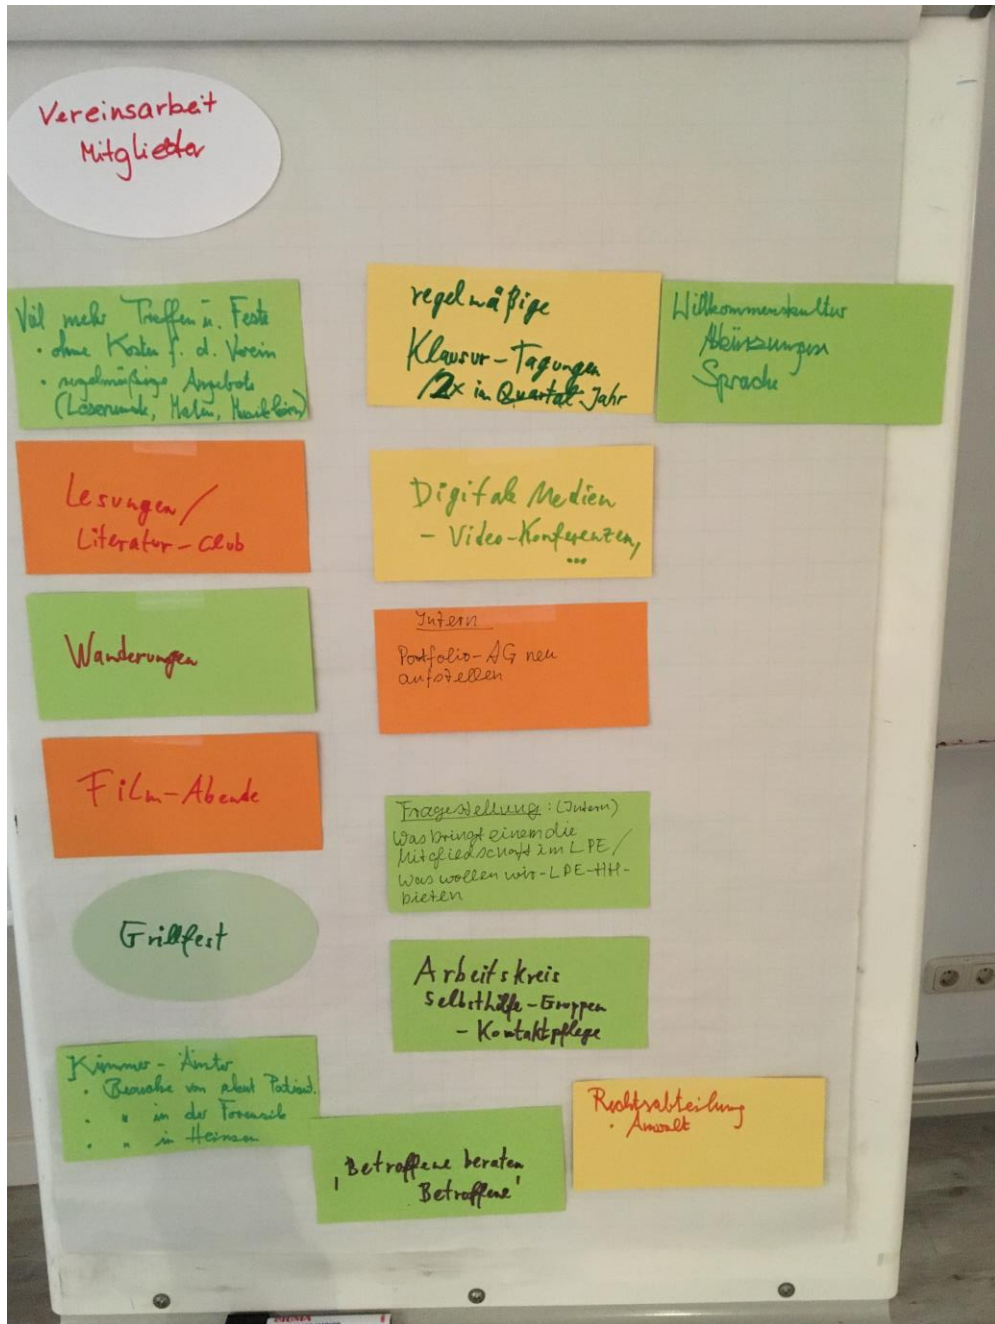 Vereinsarbeit
Mitglieder
Viel mehr Treffen u. Feste
• ohne Kosten f. d. Verein
• regelmäßige Angebote
(Leserunde, Malen,
Lesungen /
Literatur-Club
Wanderungen
Film-Abende
Grillfest
Kümmer-Ämter
• Besuche von Patient.
• " in der Forensik
• " in
regelmäßige
Klausur-Tagungen
/2x im Quartal Jahr
Digitale Medien
- Video-Konferenzen,
...
Intern
Portfolio-AG neu
aufstellen
Fragestellung: (Intern)
Was bringt einem die
Mitgliedschaft im LPE /
Was wollen wir-LPE-HH-
bieten
Arbeitskreis
Selbsthilfe-Gruppen
- Kontaktpflege
"Betroffene beraten
Betroffene"
Willkommenskultur
Abkürzungen
Sprache
Rechtsabteilung
• Anwalt